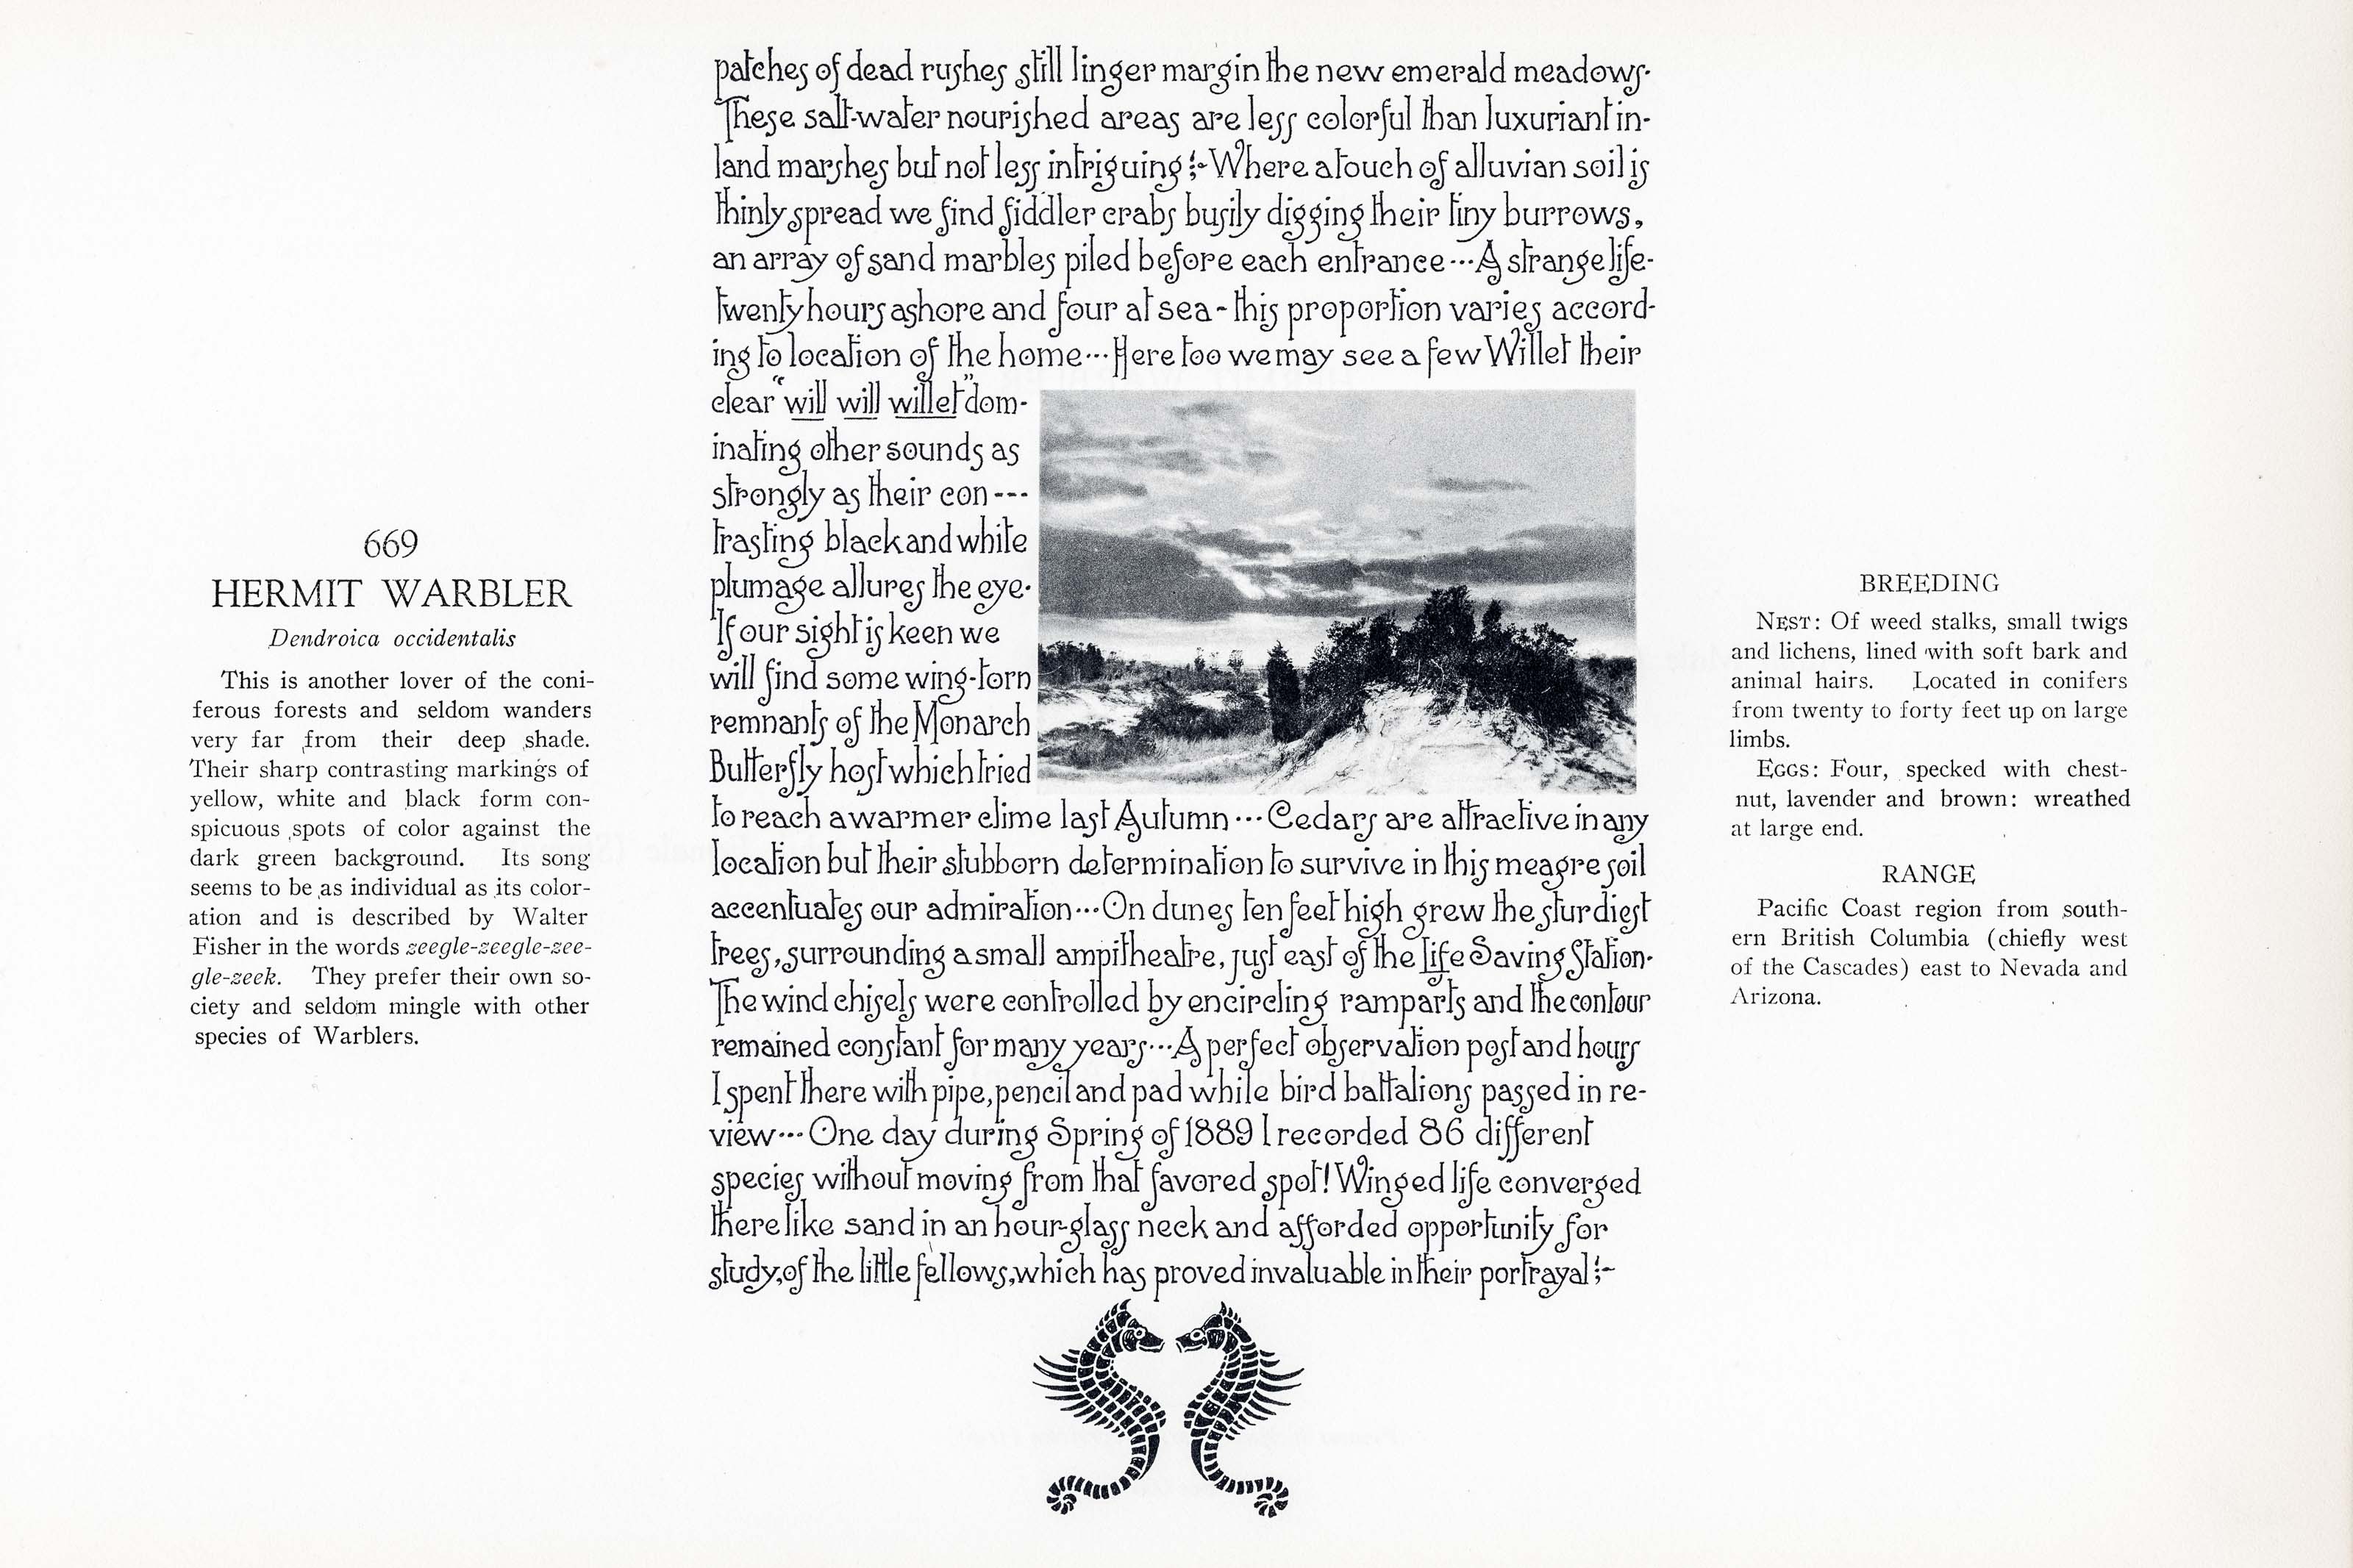 669
HERMIT WARBLER
Dendroica occidentalis
This is another lover of the coni-
ferous forests and seldom wanders
very far from their deep shade.
Their sharp contrasting markings of
yellow, white and black form con-
spicuous spots of color against the
dark green background. Its song
seems to be as individual as its color-
ation and is described by Walter
Fisher in the words zeegle-zeegle-zee-
gle-zeek. They prefer their own so-
ciety and seldom mingle with other
species of Warblers.
patches of dead rushes still linger margin the new emerald meadows.
These salt-water nourished areas are less colorful than luxuriant in-
land marshes but not less intriguing :~ Where a touch of alluvian soil is
thinly spread we find fiddler crabs busily digging their tiny burrows,
an array of sand marbles piled before each entrance ··· A strange life-
twenty hours ashore and four at sea - this proportion varies accord-
ing to location of the home ··· Here too we may see a few Willet their
clear "will will willet" dom-
inating other sounds as
strongly as their con ---
trasting black and white
plumage allures the eye.
If our sight is keen we
will find some wing-torn
remnants of the Monarch
Butterfly host which tried
to reach a warmer clime last Autumn ··· Cedars are attractive in any
location but their stubborn determination to survive in this meagre soil
accentuates our admiration ··· On dunes ten feet high grew the sturdiest
trees, surrounding a small ampitheatre, just east of the Life Saving Station.
The wind chisels were controlled by encircling ramparts and the contour
remained constant for many years ··· A perfect observation post and hours
I spent there with pipe, pencil and pad while bird battalions passed in re-
view ··· One day during Spring of 1889 I recorded 86 different
species without moving from that favored spot! Winged life converged
there like sand in an hour-glass neck and afforded opportunity for
study, of the little fellows, which has proved invaluable in their portrayal :~
BREEDING
NEST: Of weed stalks, small twigs
and lichens, lined with soft bark and
animal hairs. Located in conifers
from twenty to forty feet up on large
limbs.
EGGS: Four, specked with chest-
nut, lavender and brown: wreathed
at large end.
RANGE
Pacific Coast region from south-
ern British Columbia (chiefly west
of the Cascades) east to Nevada and
Arizona.